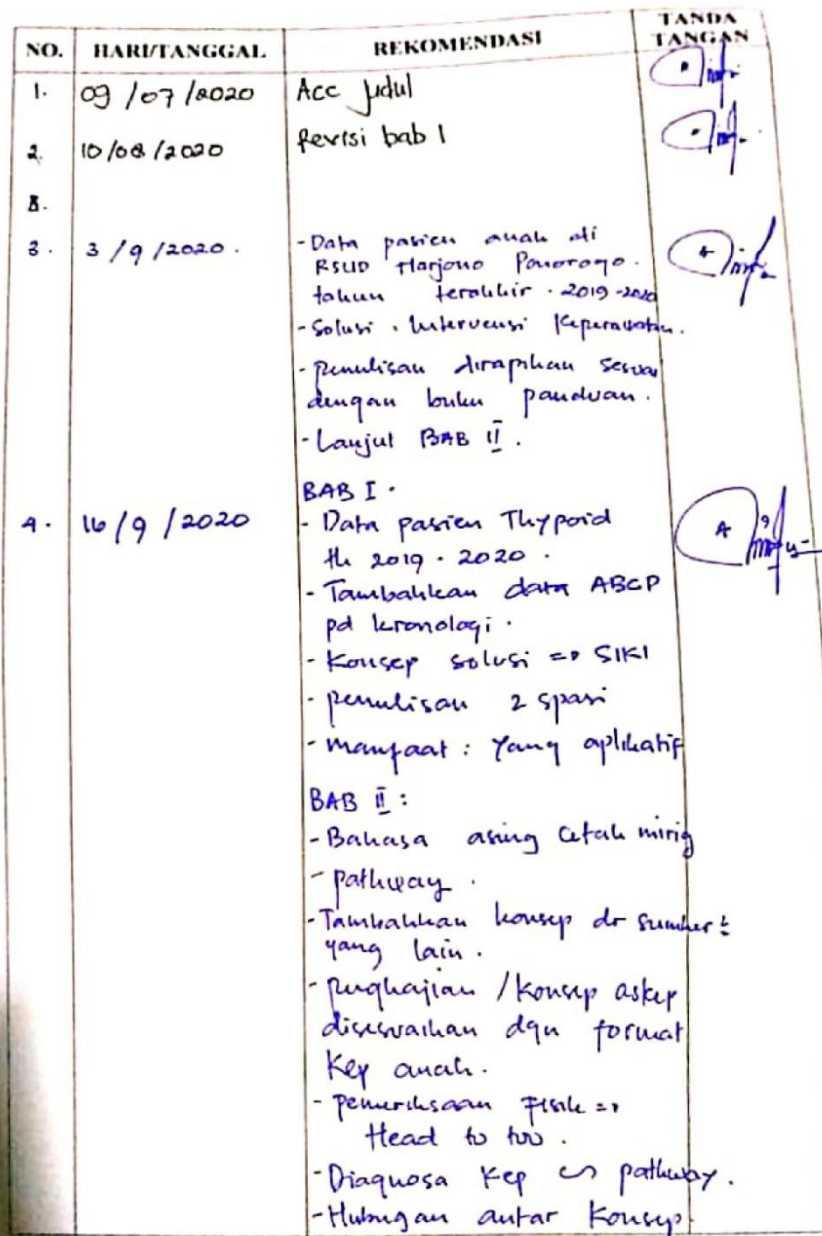 NO. HARI/TANGGAL REKOMENDASI TANDA TANGAN
1. 09/07/2020 Acc judul
2. 10/08/2020 Revisi bab 1
3.
3. 3/9/2020. - Data pasien anak di
RSUD Harjono Ponorogo.
tahun terakhir. 2019-2020
- Solusi. Intervensi Keperawatan.
- penulisan dirapihan sesuai
dengan buku panduan.
- Lanjut BAB II.
BAB I.
4. 16/9/2020 - Data pasien Thypoid
th 2019 - 2020.
- Tambahkan data ABCD
pd kronologi.
- Konsep solusi => SIKI
- penulisan 2 spasi
- manfaat : Yang aplikatif
BAB II :
- Bahasa asing cetak mirig
- pathway.
- Tambahkan konsep dr sumber²
yang lain.
- pengkajian / konsep askep
disesuaikan dgn format
Kep anak.
- pemeriksaan Fisik =>
Head to too.
- Diagnosa Kep ↔ pathway.
- Hubugan antar Konsep.